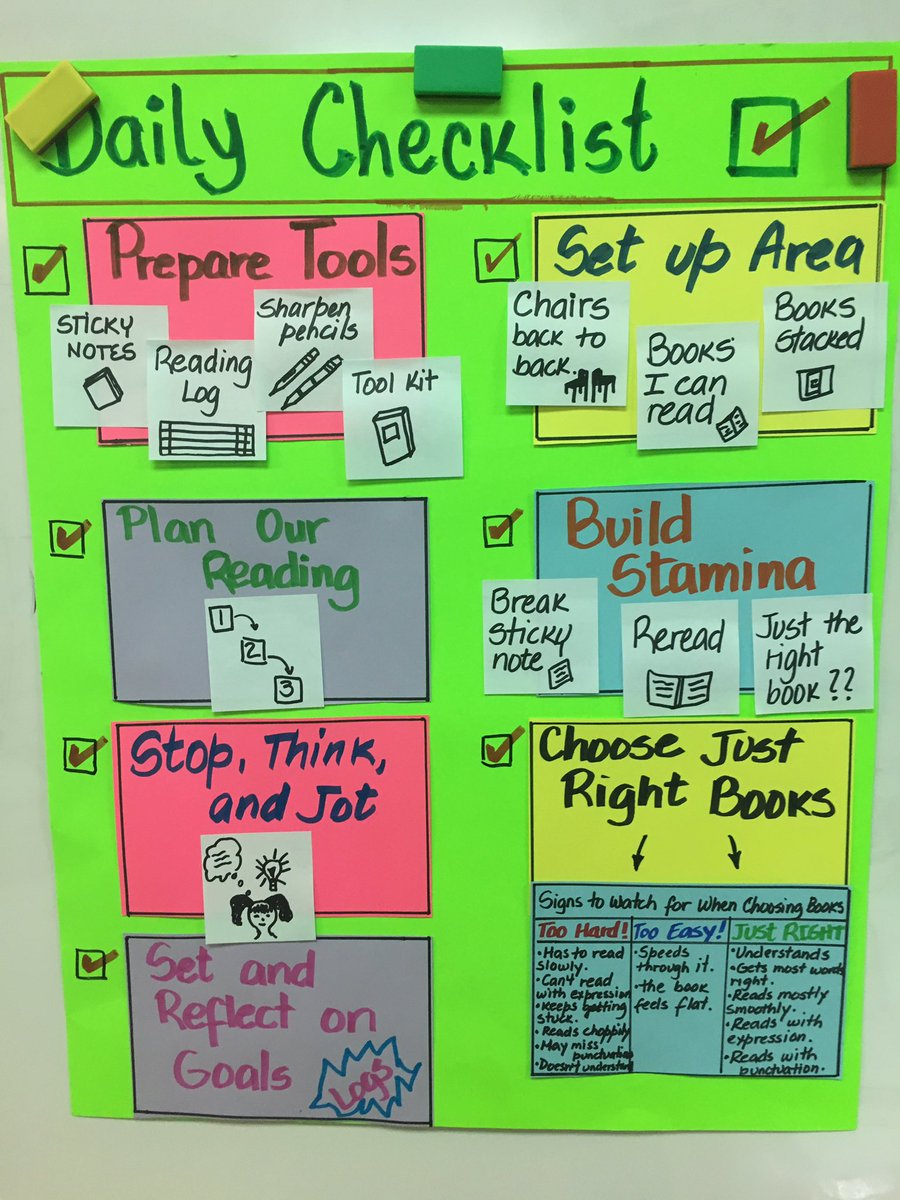 Daily Checklist
Prepare Tools
STICKY
NOTES
Reading
Log
Sharpen
pencils
Tool Kit
Set up Area
Chairs
back to
back.
Books
I can
read
Books
Stacked
Plan Our
Reading
1
2
3
Build
Stamina
Break
Sticky
note
Reread
Just the
right
book??
Stop, Think,
and Jot
Choose Just
Right Books
Signs to Watch for When Choosing Books
Too Hard!
• Has to read
slowly.
• Can't read
with expression
• Keeps getting
stuck.
• Reads choppily
• May miss
punctuation
• Doesn't understand
Too Easy!
• Speeds
through it.
• the book
feels flat.
Just Right
• Understands
• Gets most words
right.
• Reads mostly
smoothly.
• Reads with
expression.
• Reads with
punctuation.
Set and
Reflect on
Goals
Logs